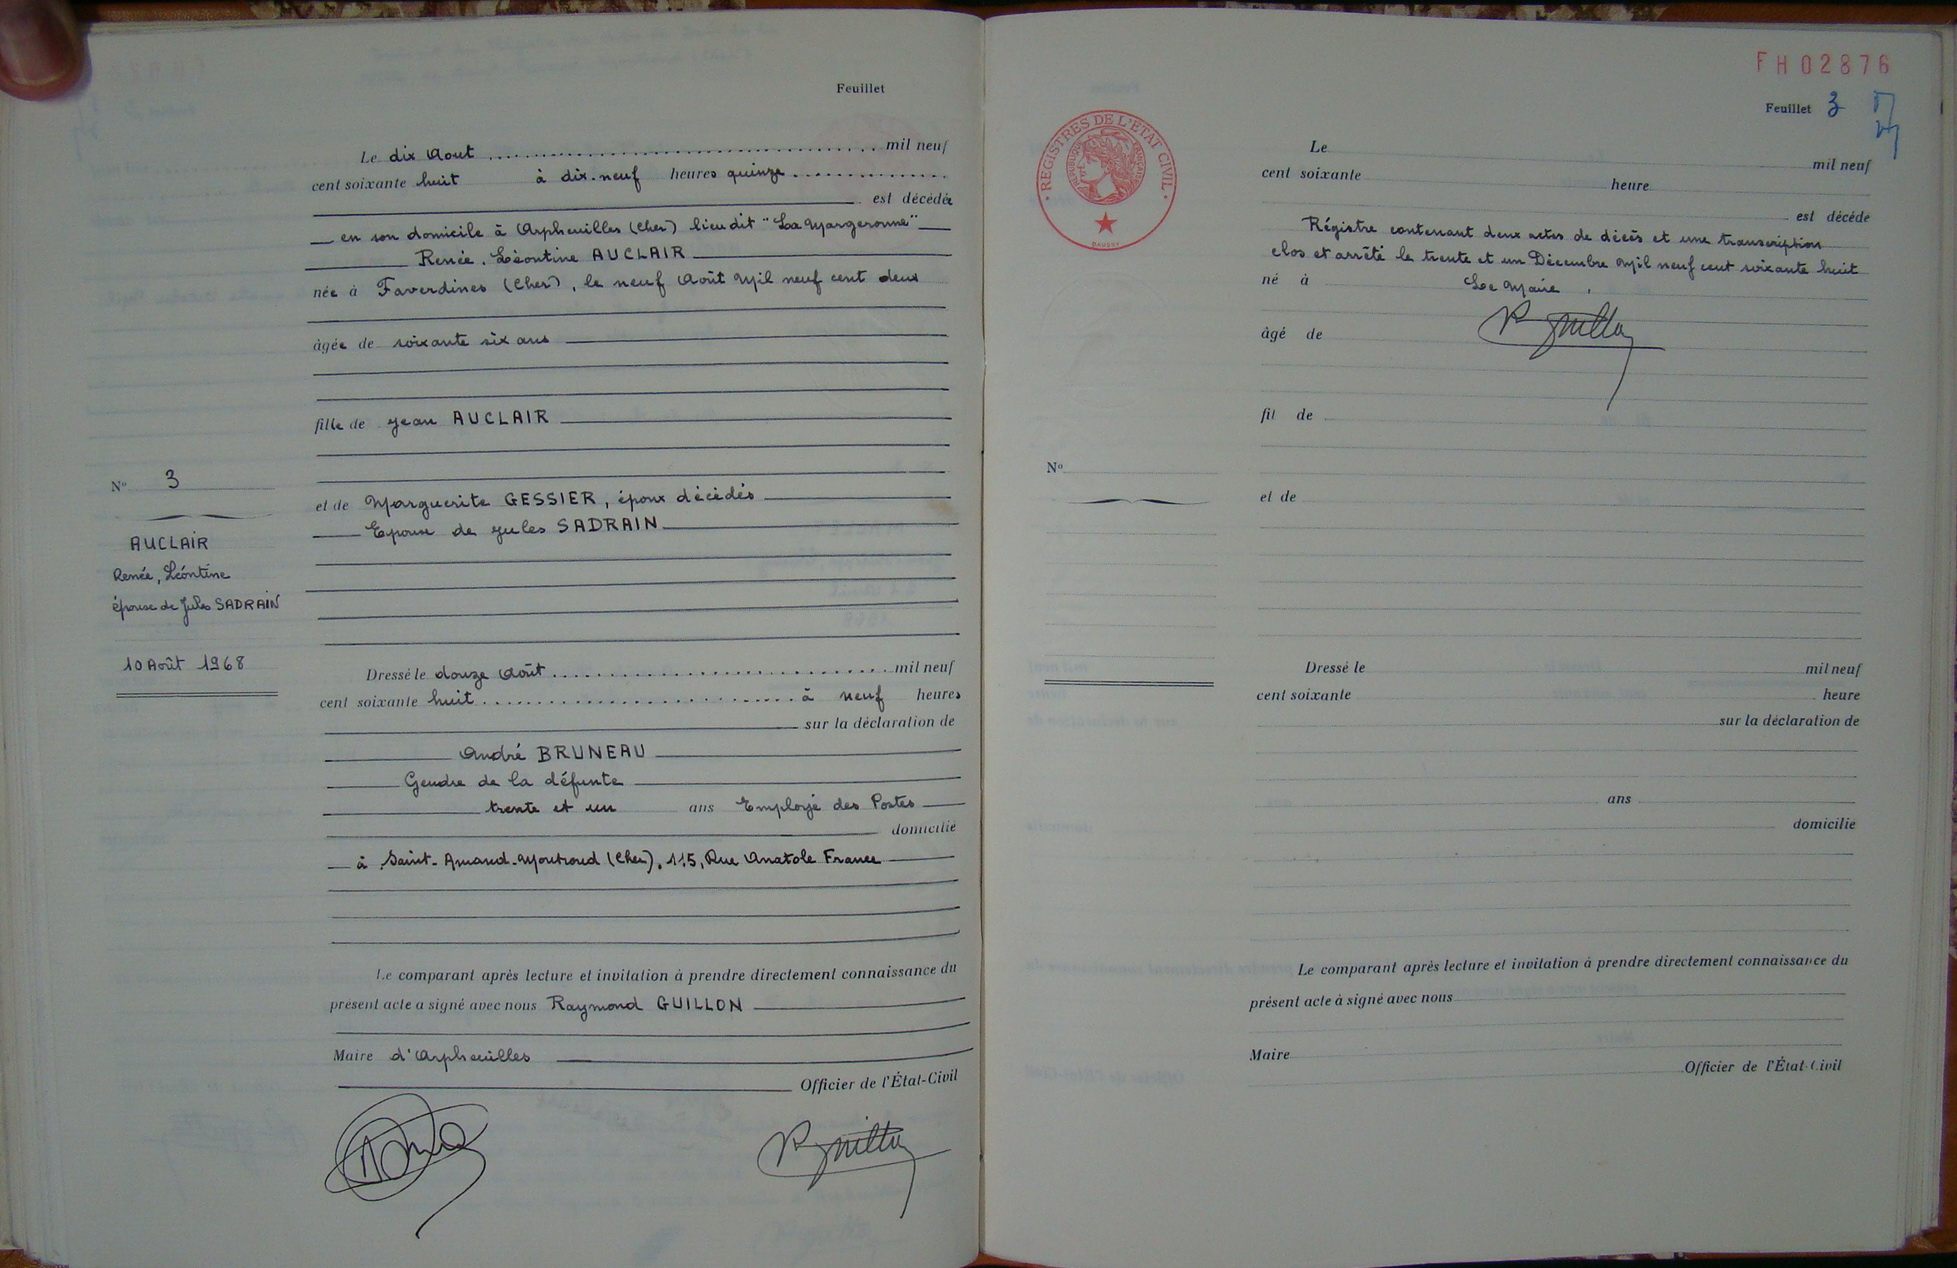 Feuillet
Le dix Aout mil neuf
cent soixante huit à dix-neuf heures quinze
est décédée
en son domicile à Arpheuilles (Cher) lieudit "La Margeronne"
Renée, Léontine AUCLAIR
née à Faverdines (Cher), le neuf Août Mil neuf cent deux
âgée de soixante six ans
fille de Jean AUCLAIR
N° 3
et de Marguerite GESSIER, époux décédés
Epouse de Jules SADRAIN
AUCLAIR
Renée, Léontine
épouse de Jules SADRAIN
10 Août 1968
Dressé le douze Août mil neuf
cent soixante huit à neuf heures
sur la déclaration de
André BRUNEAU
Gendre de la défunte
trente et un ans Employé des Postes
domicilié
à Saint-Amand-Montrond (Cher), 115, Rue Anatole France
Le comparant après lecture et invitation à prendre directement connaissance du
présent acte a signé avec nous Raymond GUILLON
Maire d'Arpheuilles
Officier de l'État-Civil
FH02876
Feuillet 3
REGISTRES DE L'ETAT CIVIL
REPUBLIQUE FRANÇAISE
Le mil neuf
cent soixante heure
est décédé
Régistre contenant deux actes de décès et une transcription
clos et arrêté le trente et un Décembre Mil neuf cent soixante huit
né à Le Maire,
âgé de
fil de
N°
et de
Dressé le mil neuf
cent soixante heure
sur la déclaration de
ans
domicilié
Le comparant après lecture et invitation à prendre directement connaissance du
présent acte à signé avec nous
Maire
Officier de l'État-Civil